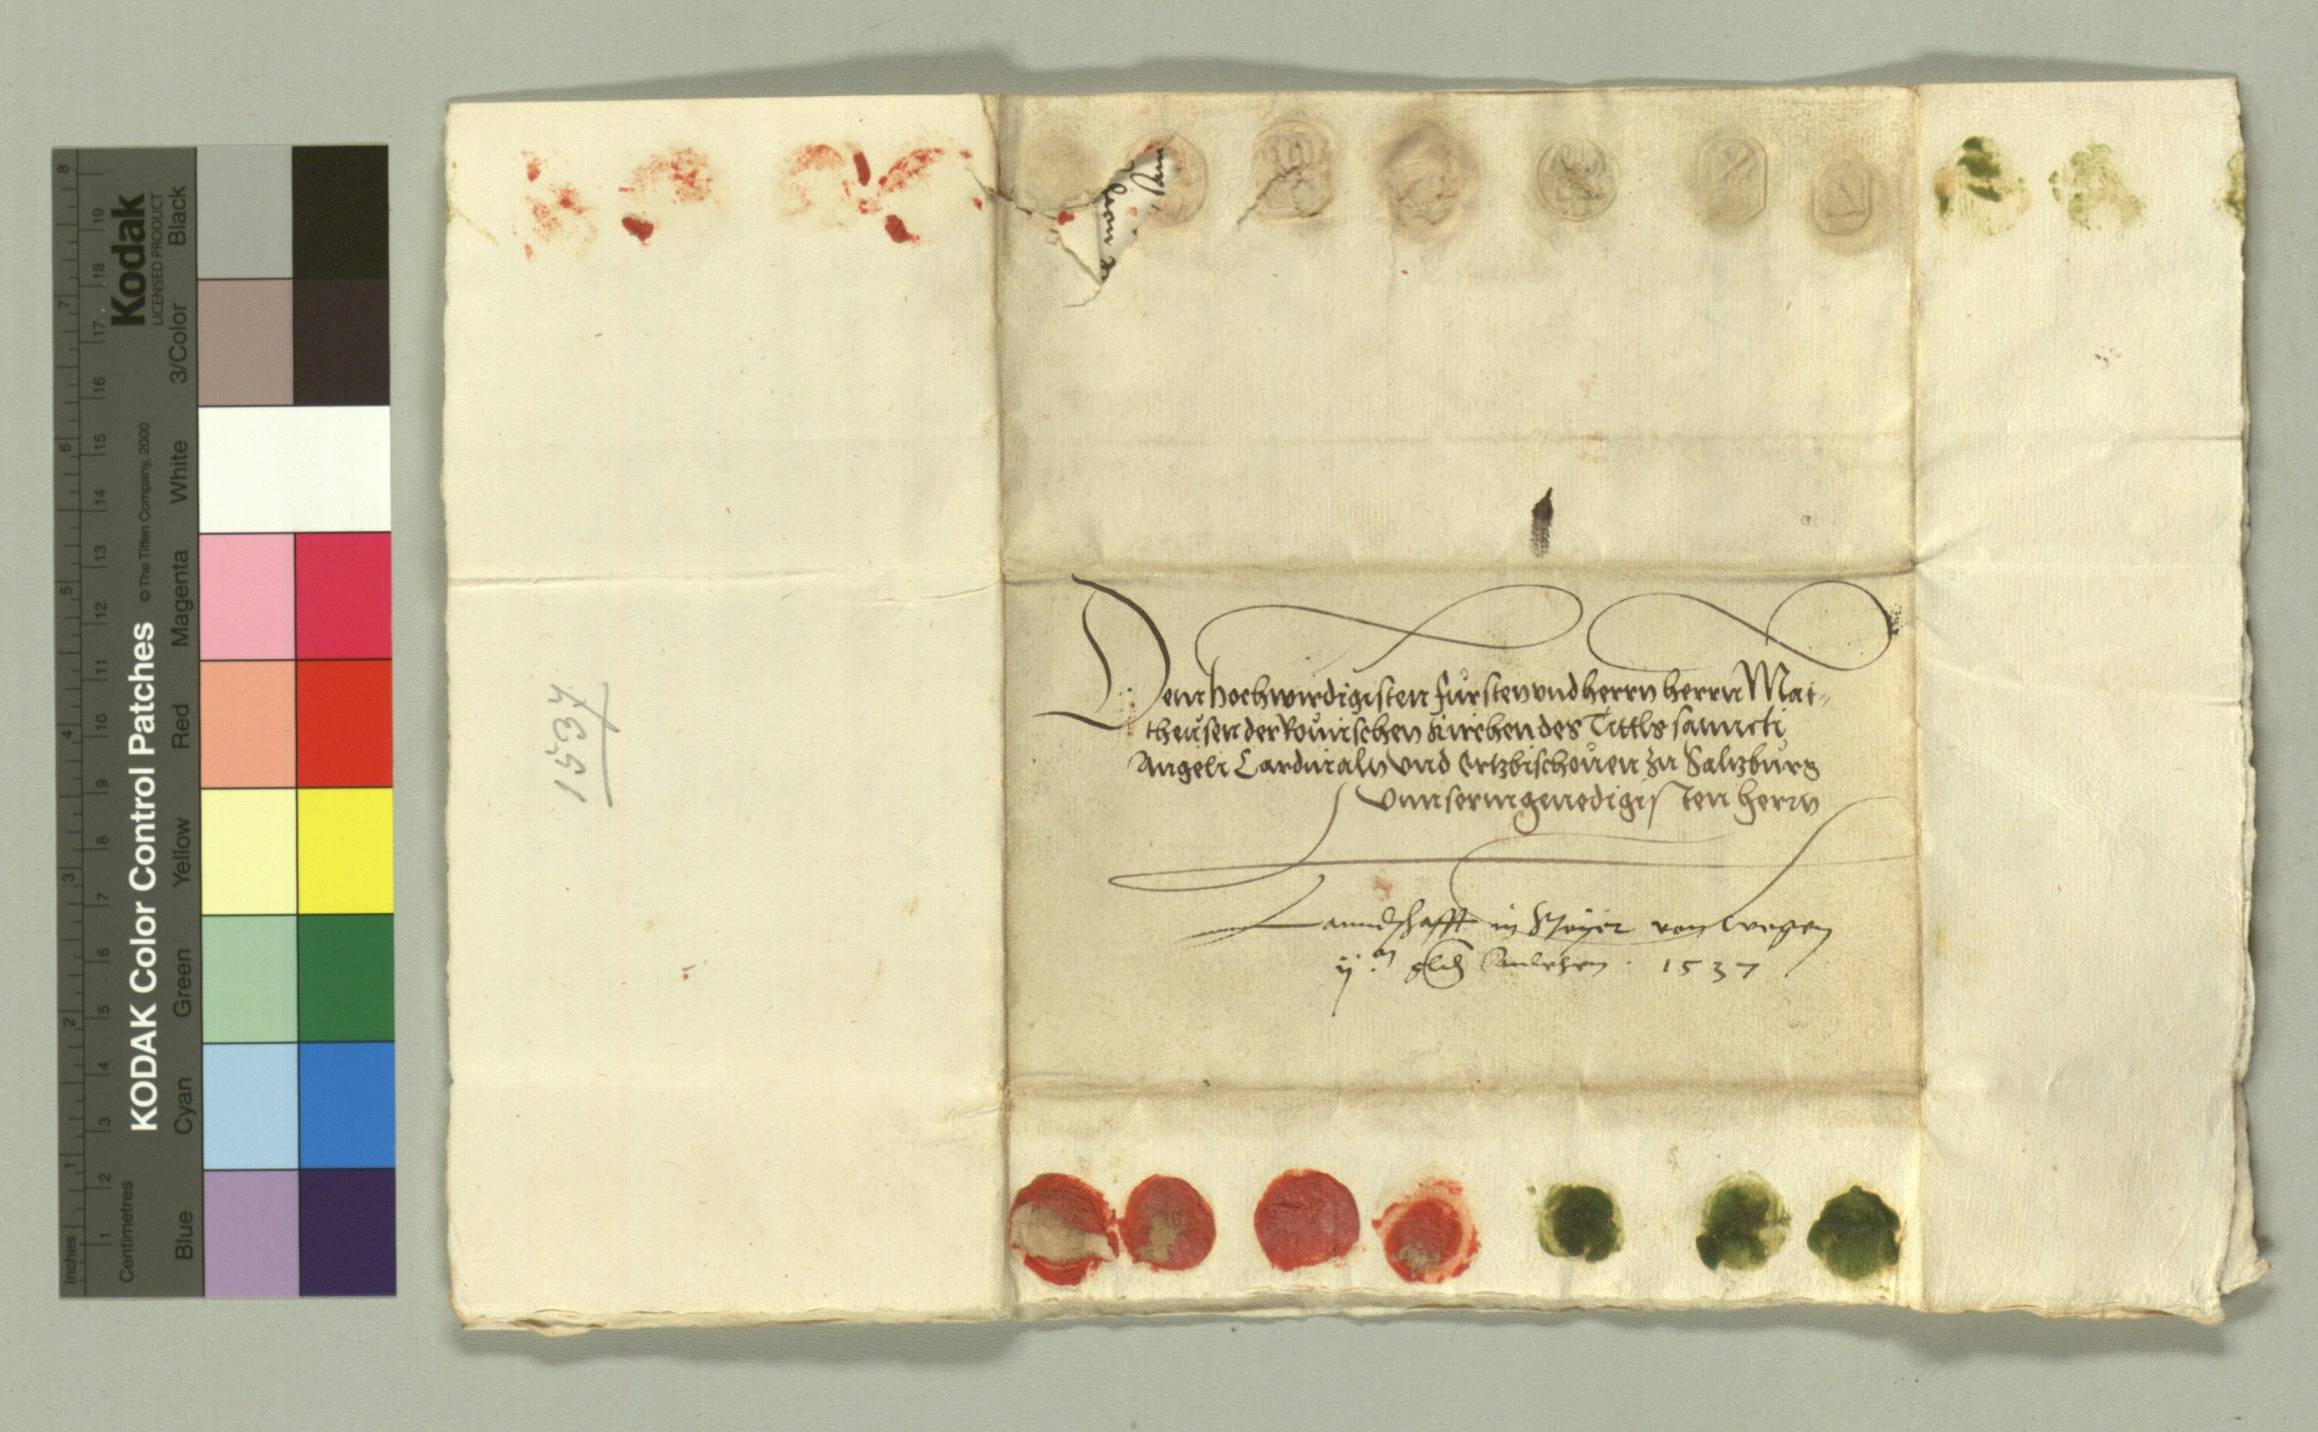 KODAK Color Control Patches
© The Tiffen Company, 2000
Kodak
LICENSED PRODUCT
Inches
1 2 3 4 5 6 7 8
Centimetres
1 2 3 4 5 6 7 8 9 10 11 12 13 14 15 16 17 18 19
Blue
Cyan
Green
Yellow
Red
Magenta
White
3/Color
Black
1537
Dem hochwirdigisten fürsten vnd herrn herrn Mat-
theüsen der Römischen Kirchen des Tittls sanncti
Angeli Cardinaln vnd Ertzbischouen zu Saltzburg
vnnserm genedigisten herrn
Lanndschafft in Steyer von wegen
ij.m gldn Anlehen. 1537